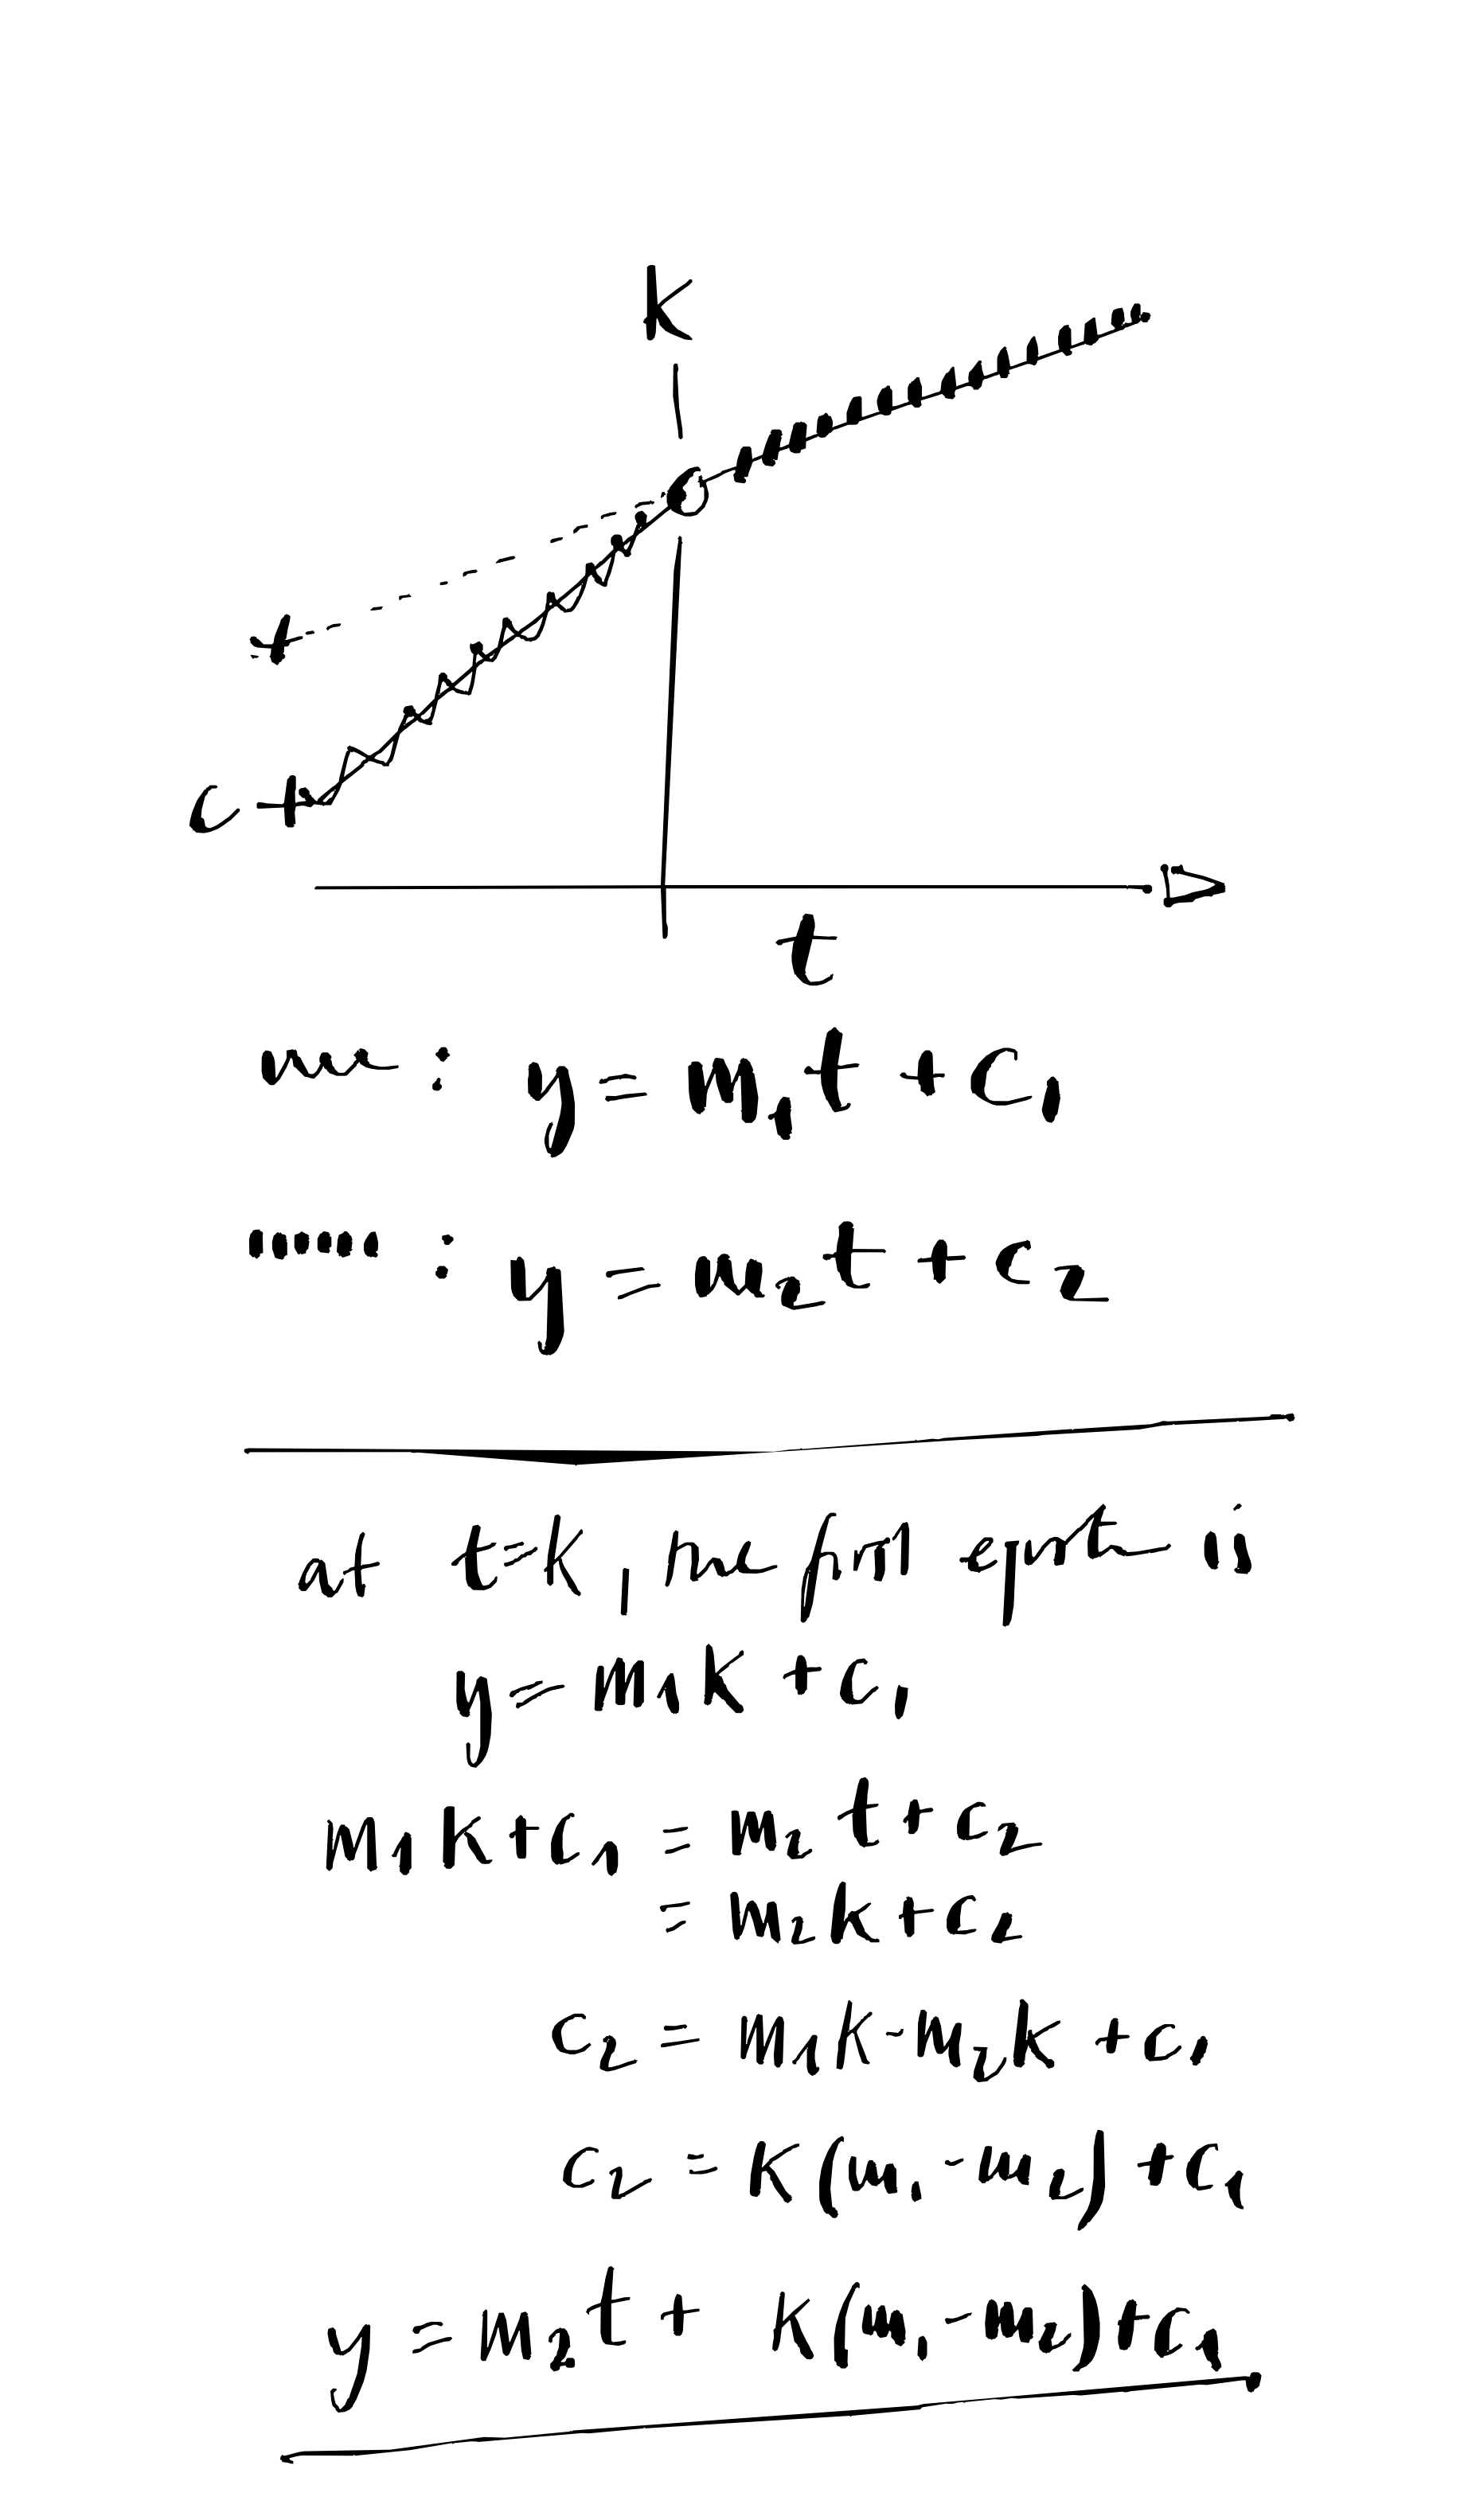 K
t
m : y = m₁t + c₁
: y = m₂t + c₂
at t=k, pre function is
y = m₁k + c₁
m₁k+c₁ = m₂t + c₂
= m₂k + c₂
c₂ = m₁k - m₂k + c₁
c₂ = k(m₁ - m₂) + c₁
y = m₂t + k(m₁ - m₂)+c₁